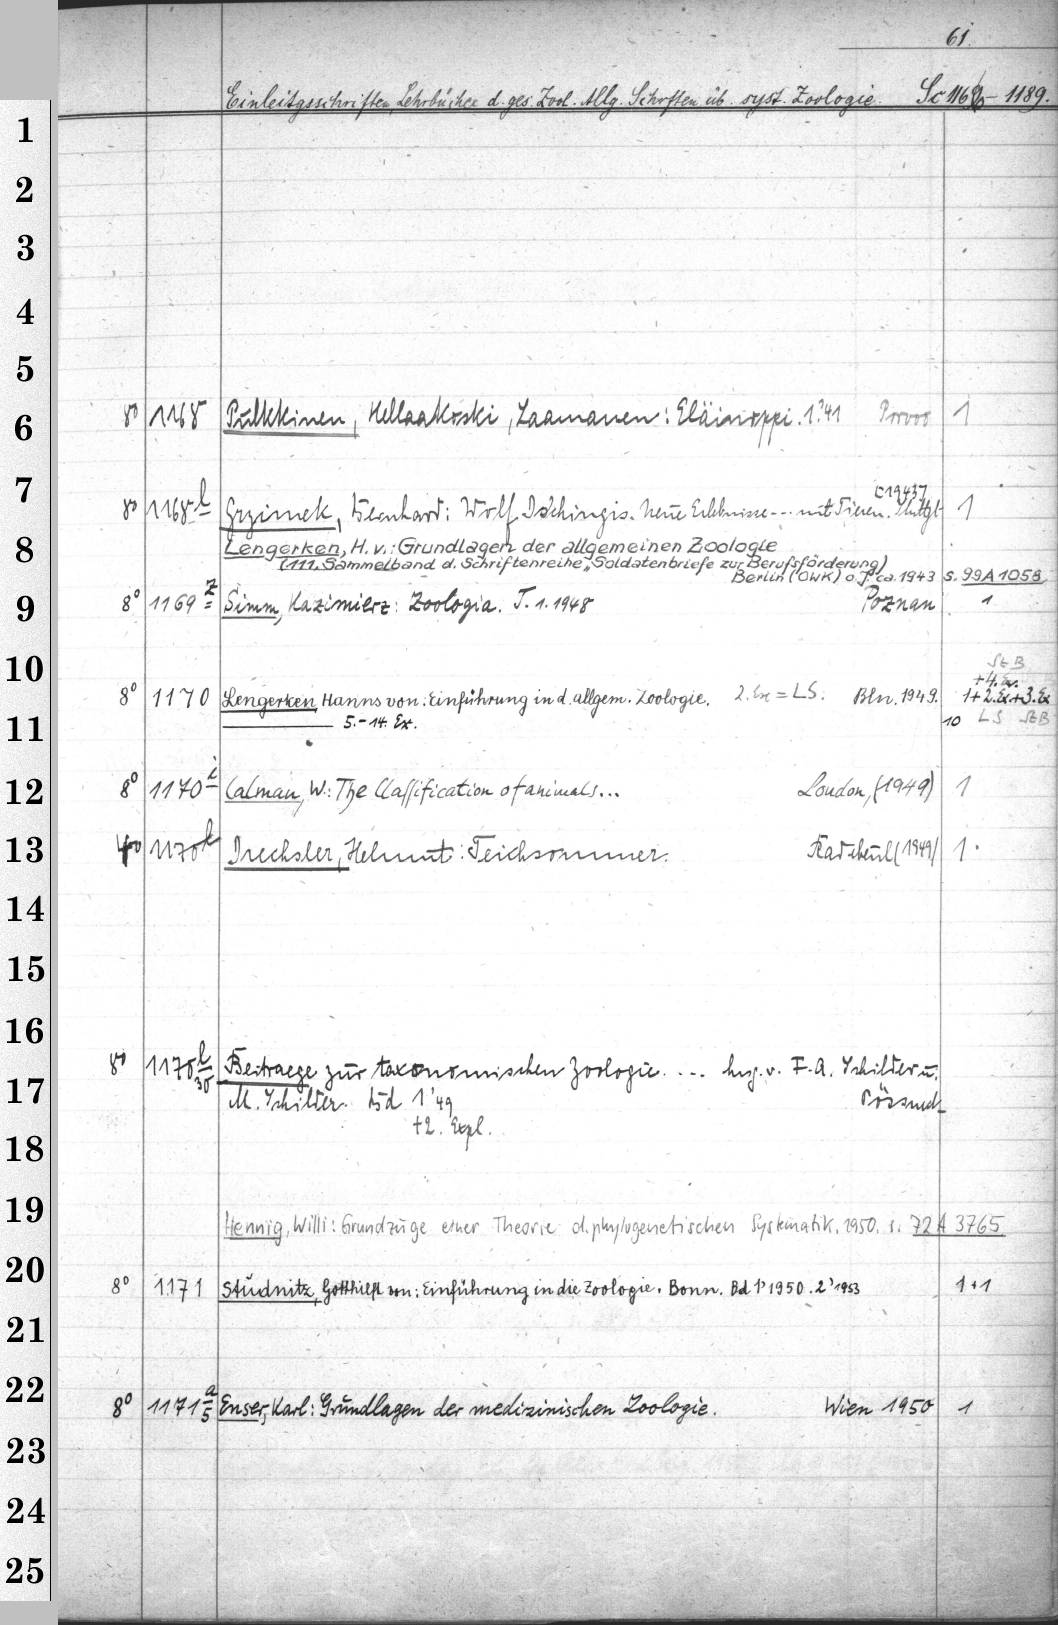 61.
Einleitgsschriften, Lehrbücher d. ges. Zool. Allg. Schriften üb. syst. Zoologie. Sc 1168 - 1189.
1
2
3
4
5
6
8° 1168 Pulkkinen, Hellaakoski, Laamanen: Eläinoppi. 1?41 Porvoo 1
7
[1943]
8° 1168 l Grzimek, Bernhard: Wolf Dschingis. Neue Erlebnisse --- mit Tieren. Stuttg. 1
8
Lengerken, H. v.: Grundlagen der allgemeinen Zoologie
(111. Sammelband d. Schriftenreihe „Soldatenbriefe zur Berufsförderung)
Berlin (OKW) o. J. ca. 1943 s. 99 A 1058
9
8° 1169 z Simm, Kazimierz: Zoologia. T. 1. 1948 Poznan 1
10
St B
+4. Ex.
8° 1170 Lengerken, Hanns von: Einführung in d. allgem. Zoologie. 2. Ex = LS. Bln. 1949. 1+2. Ex+3. Ex
11
5.-14. Ex. 10 LS StB
12
8° 1170 i Calman, W.: The Classification of animals... London, (1949) 1
13
4° 1170 k Drechsler, Helmut: Teichsommer. Radebeul (1949) 1
14
15
16
8° 1170 l 30 Beitraege zur taxonomischen Zoologie. ... hrsg. v. F. A. Schilder u.
17
M. Schilder. Bd 1'49 Pössneck
+2. Expl.
18
19
Hennig, Willi: Grundzüge einer Theorie d. phylogenetischen Systematik. 1950. s. 72 A 3765
20
8° 1171 Studnitz, Gotthilft von: Einführung in die Zoologie. Bonn. Bd 1' 1950. 2' 1953 1+1
21
22
8° 1171 a 5 Enser, Karl: Grundlagen der medizinischen Zoologie. Wien 1950 1
23
24
25